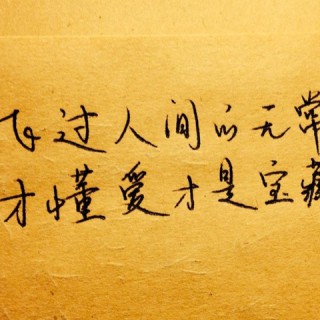 飞过人间的无常
才懂爱才是宝藏